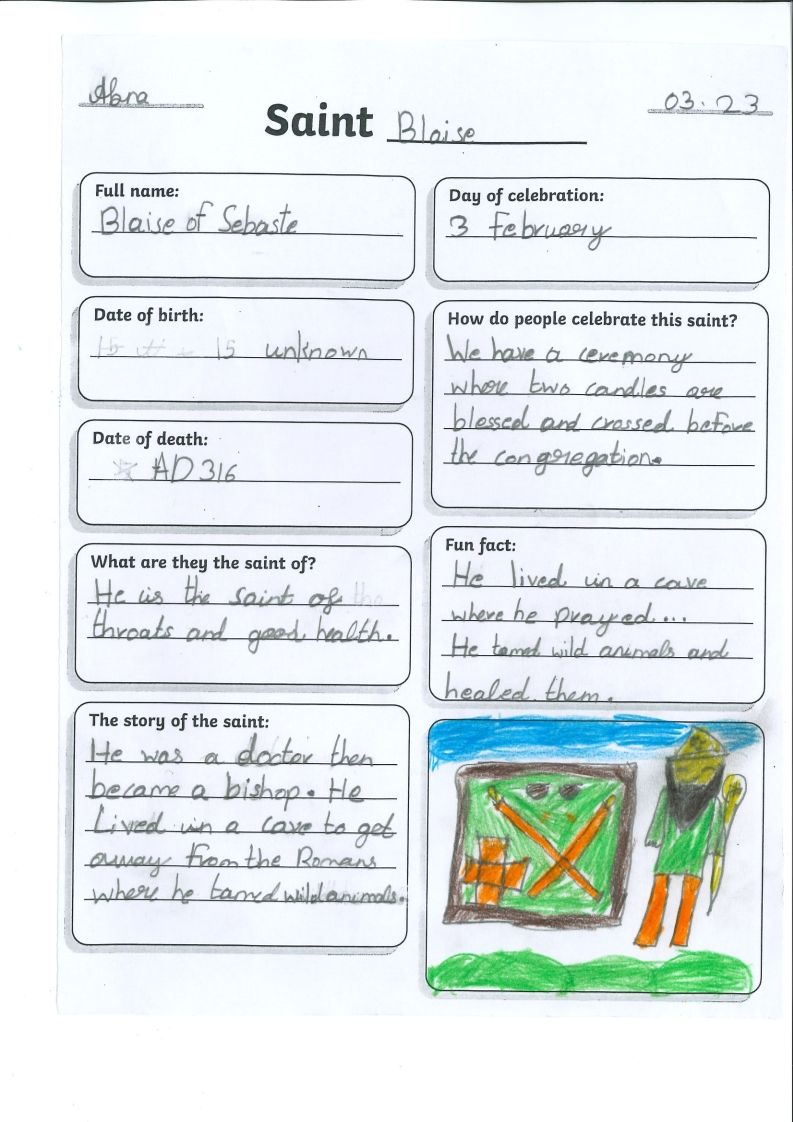 Abra
03.23
Saint Blaise
Full name:
Blaise of Sebaste
Day of celebration:
3 February
Date of birth:
15 unknown
How do people celebrate this saint?
We have a ceremony
where two candles are
blessed and crossed before
the congregation.
Date of death:
AD 316
What are they the saint of?
He is the saint of the
throats and good health.
Fun fact:
He lived in a cave
where he prayed...
He tamed wild animals and
healed them.
The story of the saint:
He was a doctor then
became a bishop. He
Lived in a cave to get
away from the Romans
where he tamed wild animals.